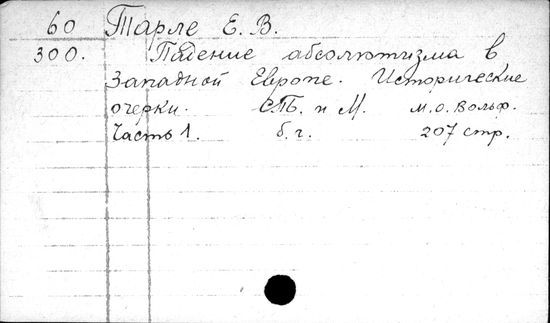 60 Тарле Е. В.
300. Падение абсолютизма в
Западной Европе. Исторические
очерки. СПБ. и М. М. О. Вольф.
Часть 1. б. г. 207 стр.